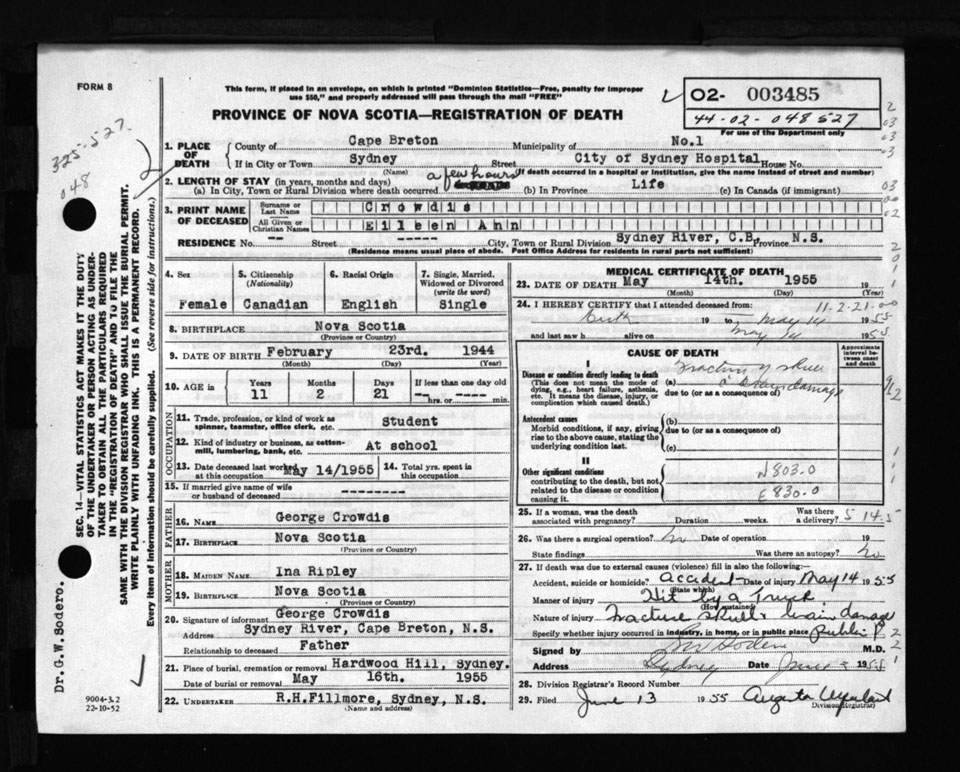 FORM 8
This form, if placed in an envelope, on which is printed "Dominion Statistics—Free, penalty for improper
use $50," and properly addressed will pass through the mail "FREE"
PROVINCE OF NOVA SCOTIA—REGISTRATION OF DEATH
02- 003485
44-02-048527
For use of the Department only
325-527
048
1. PLACE OF DEATH
County of Cape Breton Municipality of No.1
If in City or Town Sydney Street City of Sydney Hospital House No.
(Name) (If death occurred in a hospital or institution, give the name instead of street and number)
2. LENGTH OF STAY (in years, months and days)
(a) In City, Town or Rural Division where death occurred a few hours (b) In Province Life (c) In Canada (if immigrant)
3. PRINT NAME OF DECEASED
Surname or Last Name Crowdis
All Given or Christian Names Eileen Ann
RESIDENCE No. -- Street ----- City, Town or Rural Division Sydney River, C.B. Province N.S.
(Residence means usual place of abode. Post Office Address for residents in rural parts not sufficient)
4. Sex Female
5. Citizenship (Nationality) Canadian
6. Racial Origin English
7. Single, Married, Widowed or Divorced (write the word) Single
8. BIRTHPLACE Nova Scotia
(Province or Country)
9. DATE OF BIRTH February 23rd. 1944
(Month) (Day) (Year)
10. AGE in Years 11 Months 2 Days 21 If less than one day old -- hrs. or -- min.
OCCUPATION
11. Trade, profession, or kind of work as spinner, teamster, office clerk, etc. Student
12. Kind of industry or business, as cotton-mill, lumbering, bank, etc. At school
13. Date deceased last worked at this occupation May 14/1955 14. Total yrs. spent in this occupation
15. If married give name of wife or husband of deceased --------
FATHER
16. NAME George Crowdis
17. BIRTHPLACE Nova Scotia
(Province or Country)
MOTHER
18. MAIDEN NAME Ina Ripley
19. BIRTHPLACE Nova Scotia
(Province or Country)
20. Signature of informant George Crowdis
Address Sydney River, Cape Breton, N.S.
Relationship to deceased Father
21. Place of burial, cremation or removal Hardwood Hill, Sydney.
Date of burial or removal May 16th. 1955
22. UNDERTAKER R.H.Fillmore, Sydney, N.S.
(Name and address)
MEDICAL CERTIFICATE OF DEATH
23. DATE OF DEATH May 14th. 1955
(Month) (Day) (Year)
24. I HEREBY CERTIFY that I attended deceased from: 11-2-21-00
Birth 19 to May 14 1955
and last saw h alive on May 14 1955
CAUSE OF DEATH
Approximate interval between onset and death
I
Disease or condition directly leading to death
(This does not mean the mode of dying, e.g., heart failure, asthenia, etc. It means the disease, injury, or complication which caused death.)
(a) Fracture of skull
brain damage
due to (or as a consequence of)
Antecedent causes
Morbid conditions, if any, giving rise to the above cause, stating the underlying condition last.
(b)
due to (or as a consequence of)
(c)
II
Other significant conditions
contributing to the death, but not related to the disease or condition causing it.
N803.0
E830.0
25. If a woman, was the death associated with pregnancy? Duration weeks. Was there a delivery? 5 14-5
26. Was there a surgical operation? No Date of operation 19
State findings Was there an autopsy? No
27. If death was due to external causes (violence) fill in also the following:—
Accident, suicide or homicide? Accident Date of injury May 14 1955
(State which)
Manner of injury Hit by a Truck
(How sustained)
Nature of injury Fracture skull & brain damage
Specify whether injury occurred in industry, in home, or in public place Public P
Signed by GW Sodero M.D.
Address Sydney Date June 3 1955
28. Division Registrar's Record Number
29. Filed June 13 1955 Augusta
Division Registrar
SEC. 14—VITAL STATISTICS ACT MAKES IT THE DUTY
OF THE UNDERTAKER OR PERSON ACTING AS UNDER-
TAKER TO OBTAIN ALL THE PARTICULARS REQUIRED
IN THE "REGISTRATION OF DEATH" AND TO FILE THE
SAME WITH THE DIVISION REGISTRAR WHO SHALL ISSUE THE BURIAL PERMIT.
WRITE PLAINLY WITH UNFADING INK. THIS IS A PERMANENT RECORD.
Every item of information should be carefully supplied. (See reverse side for instructions.)
Dr. G.W. Sodero.
9004-3.2
22-10-52